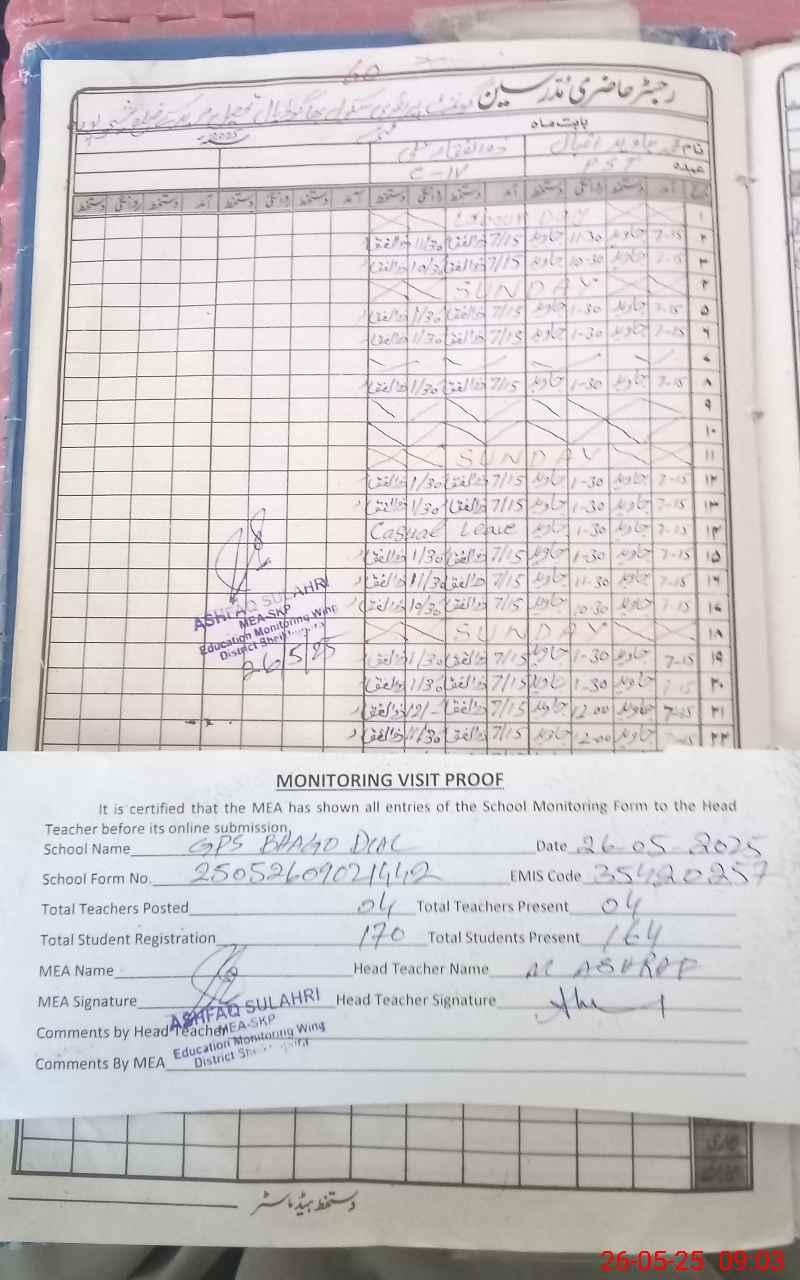 60
رجسٹر حاضری مدرسین گورنمنٹ پرائمری سکول
بابت ماہ مئی 2025
نام محمد جاوید اقبال ذوالفقار علی
عہدہ PST C-IV
تاریخ آمد دستخط روانگی دستخط آمد دستخط روانگی دستخط آمد دستخط روانگی دستخط آمد دستخط روانگی دستخط
۱ LABOUR DAY
۲ 7-15 جاوید 11-30 جاوید 7/15 ذوالفقار 11/30 ذوالفقار
۳ 7-15 جاوید 10-30 جاوید 7/15 ذوالفقار 10/30 ذوالفقار
۴ SUNDAY
۵ 7-15 جاوید 1-30 جاوید 7/15 ذوالفقار 1/30 ذوالفقار
۶ 7-15 جاوید 1-30 جاوید 7/15 ذوالفقار 1/30 ذوالفقار
۷
۸ 7-15 جاوید 1-30 جاوید 7/15 ذوالفقار 1/30 ذوالفقار
۹
۱۰
۱۱ SUNDAY
۱۲ 7-15 جاوید 1-30 جاوید 7/15 ذوالفقار 1/30 ذوالفقار
۱۳ 7-15 جاوید 1-30 جاوید 7/15 ذوالفقار 1/30 ذوالفقار
۱۴ 7-15 جاوید 1-30 جاوید Casual Leave
۱۵ 7-15 جاوید 1-30 جاوید 7/15 ذوالفقار 1/30 ذوالفقار
۱۶ 7-15 جاوید 11-30 جاوید 7/15 ذوالفقار 11/30 ذوالفقار
۱۷ 7-15 جاوید 10-30 جاوید 7/15 ذوالفقار 10/30 ذوالفقار
۱۸ SUNDAY
۱۹ 7-15 جاوید 1-30 جاوید 7/15 ذوالفقار 1/30 ذوالفقار
۲۰ 7-15 جاوید 1-30 جاوید 7/15 ذوالفقار 1/30 ذوالفقار
۲۱ 7-15 جاوید 12-00 جاوید 7/15 ذوالفقار 12/- ذوالفقار
۲۲ 7-15 جاوید جاوید 7/15 ذوالفقار ذوالفقار
ASHFAQ SULAHRI
MEA-SKP
Education Monitoring Wing
District
26/5/25
MONITORING VISIT PROOF
It is certified that the MEA has shown all entries of the School Monitoring Form to the Head
Teacher before its online submission.
School Name GPS BHAGO DIAL Date 26-05-2025
School Form No. 25052609021442 EMIS Code 35420257
Total Teachers Posted 04 Total Teachers Present 04
Total Student Registration 170 Total Students Present 164
MEA Name Head Teacher Name M ASHRAF
MEA Signature Head Teacher Signature
Comments by Head Teacher
Comments By MEA
ASHFAQ SULAHRI
MEA-SKP
Education Monitoring Wing
District
دستخط ہیڈ ماسٹر
26-05-25 09:03